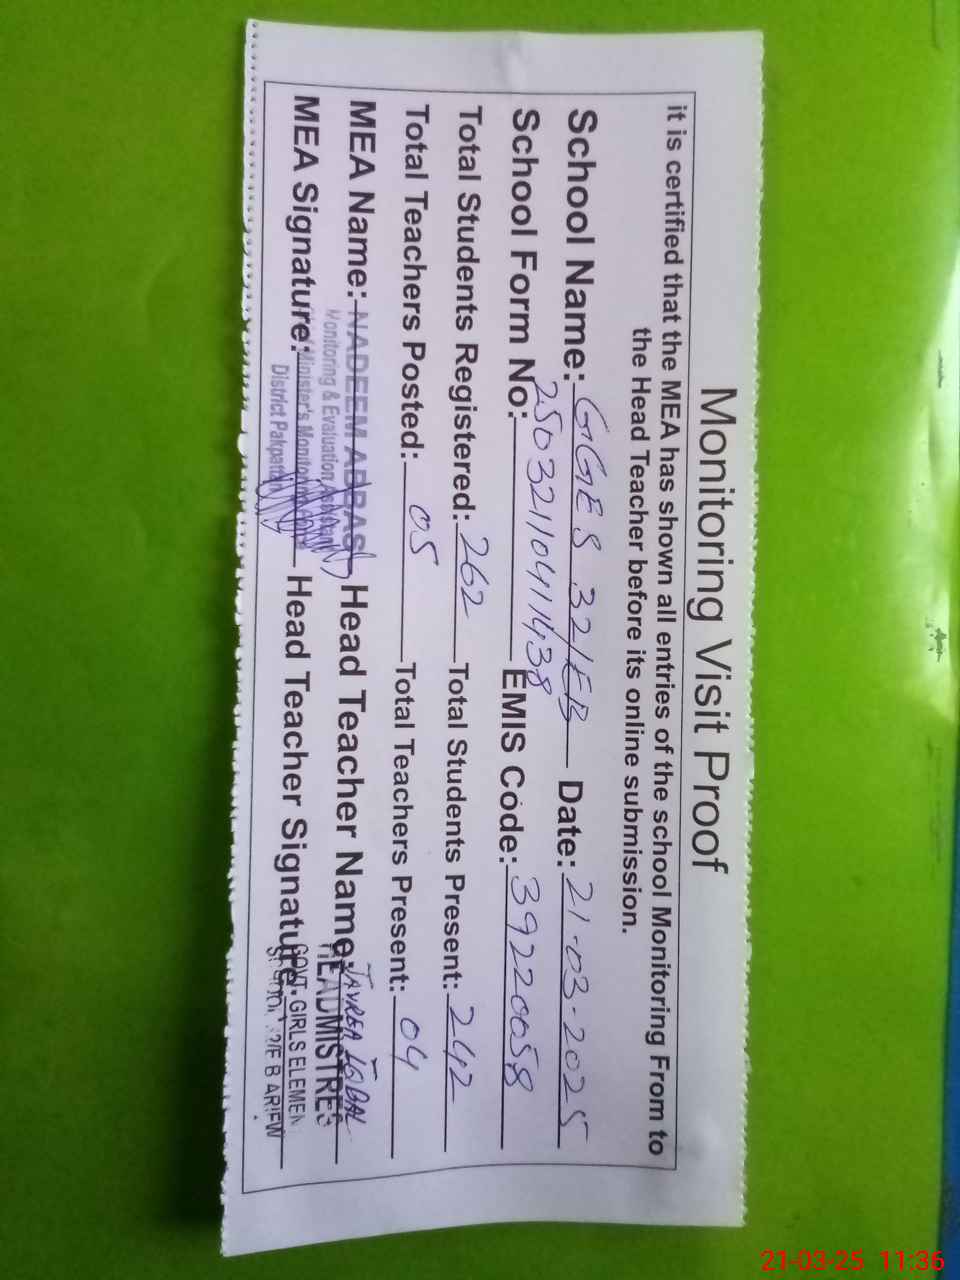 Monitoring Visit Proof
it is certified that the MEA has shown all entries of the school Monitoring From to
the Head Teacher before its online submission.
School Name: GGES 32/EB Date: 21-03-2025
School Form No: 25032110411438 EMIS Code: 39220058
Total Students Registered: 262 Total Students Present: 242
Total Teachers Posted: 05 Total Teachers Present: 04
MEA Name: NADEEM ABBAS Head Teacher Name:
Monitoring & Evaluation Assistant
HEADMISTRES
MEA Signature: Minister's Head Teacher Signature:
GOVT. GIRLS ELEMEN
District
21-03-25 11:36